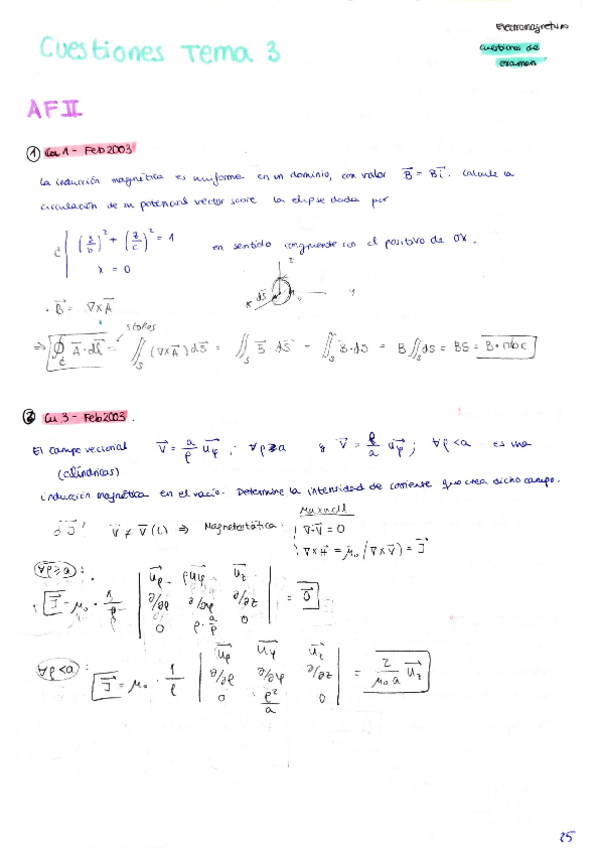 Electromagnetismo
Cuestiones de
examen
Cuestiones Tema 3
AFII
① Cu 1 - Feb 2003
La inducción magnética es uniforme en un dominio, con valor B⃗ = B i⃗. Calcule la
circulación de su potencial vector sobre la elipse dada por
c { (y/b)² + (z/c)² = 1
x = 0
en sentido congruente con el positivo de OX.
z
y
x
dS⃗
· B⃗ = ∇×A⃗
stokes
⇒ ∮_c A⃗·dl⃗ = ∬_S (∇×A⃗) dS⃗ = ∬_S B⃗·dS⃗ = ∬_S B·dS = B ∬_S dS = BS = B·πbc
② Cu 3 - Feb 2003.
El campo vectorial V⃗ = a/ρ u⃗φ ; ∀ρ≥a y V⃗ = ρ/a u⃗φ ; ∀ρ<a es una
(cilíndricas)
inducción magnética en el vacío. Determine la intensidad de corriente que crea dicho campo.
¿J⃗? V⃗ ≠ V⃗(t) ⇒ Magnetostática:
Maxwell
∇·V⃗ = 0
∇×H⃗ = μ₀ (∇×V⃗) = J⃗
∀ρ≥a :
J⃗ = μ₀ · 1/ρ | u⃗ρ ρu⃗φ u⃗z |
| ∂/∂ρ ∂/∂φ ∂/∂z | = 0⃗
| 0 ρ·a/ρ 0 |
∀ρ<a :
J⃗ = μ₀ · 1/ρ | u⃗ρ u⃗φ u⃗z |
| ∂/∂ρ ∂/∂φ ∂/∂z | = 2/(μ₀ a) u⃗z
| 0 ρ²/a 0 |
25